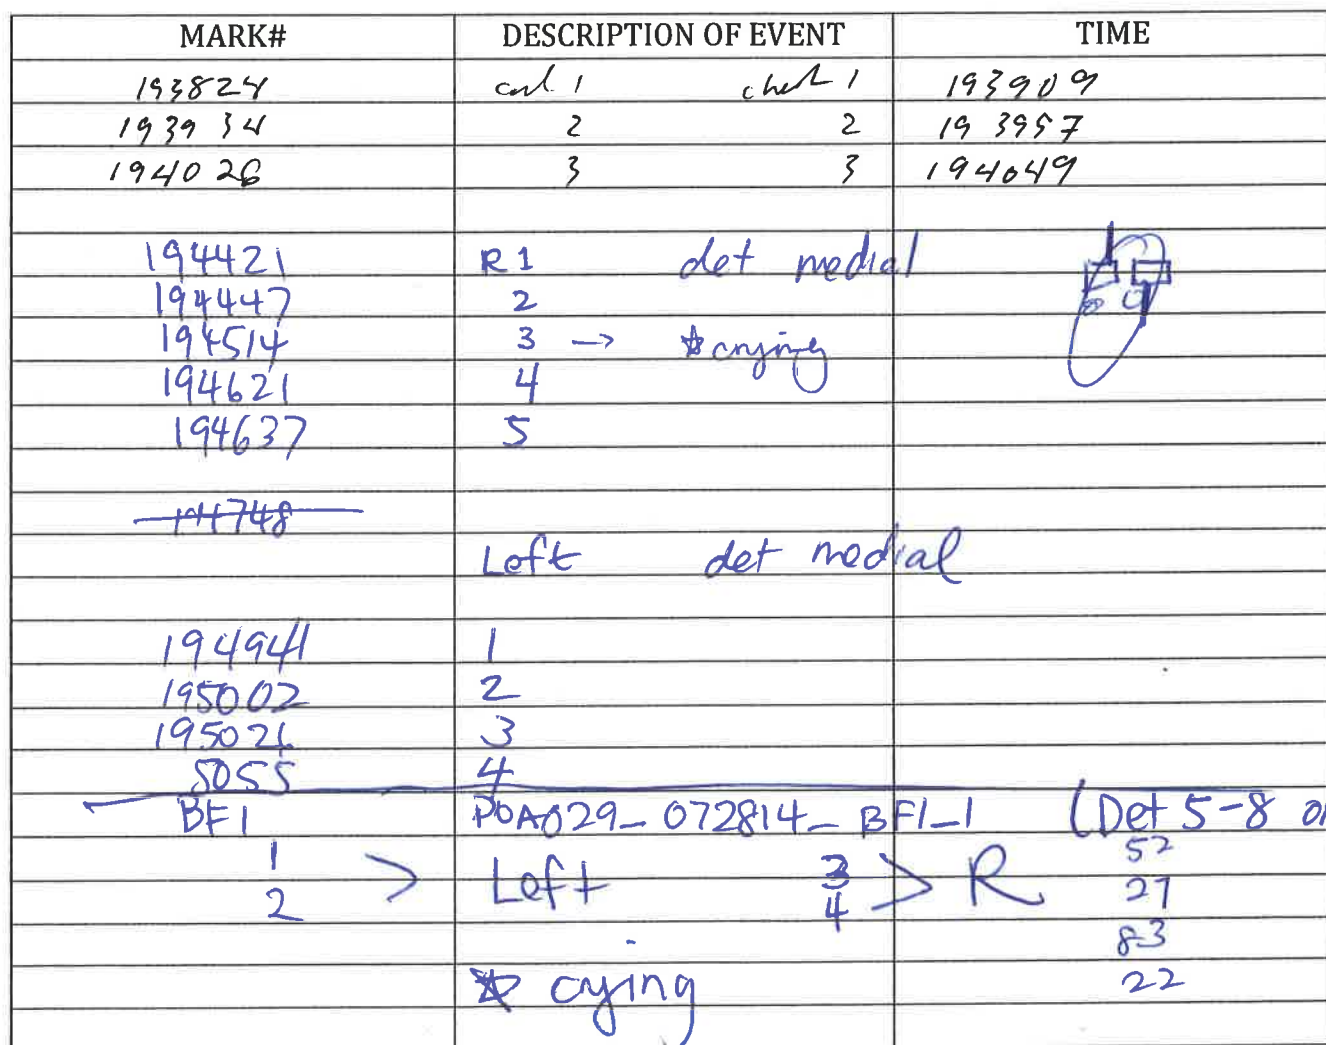 MARK# DESCRIPTION OF EVENT TIME
193824 1 1 193909
193934 2 2 193957
194026 3 3 194049
194421 R1 det medial
194447 2
194514 3 → crying
194621 4
194637 5
Left det medial
194941 1
195002 2
195021 3
5055 4
BF1 POA029_072814_BF1_1 (Det 5-8
1 > Left 3 > R 52
2 4 27
83
* crying 22